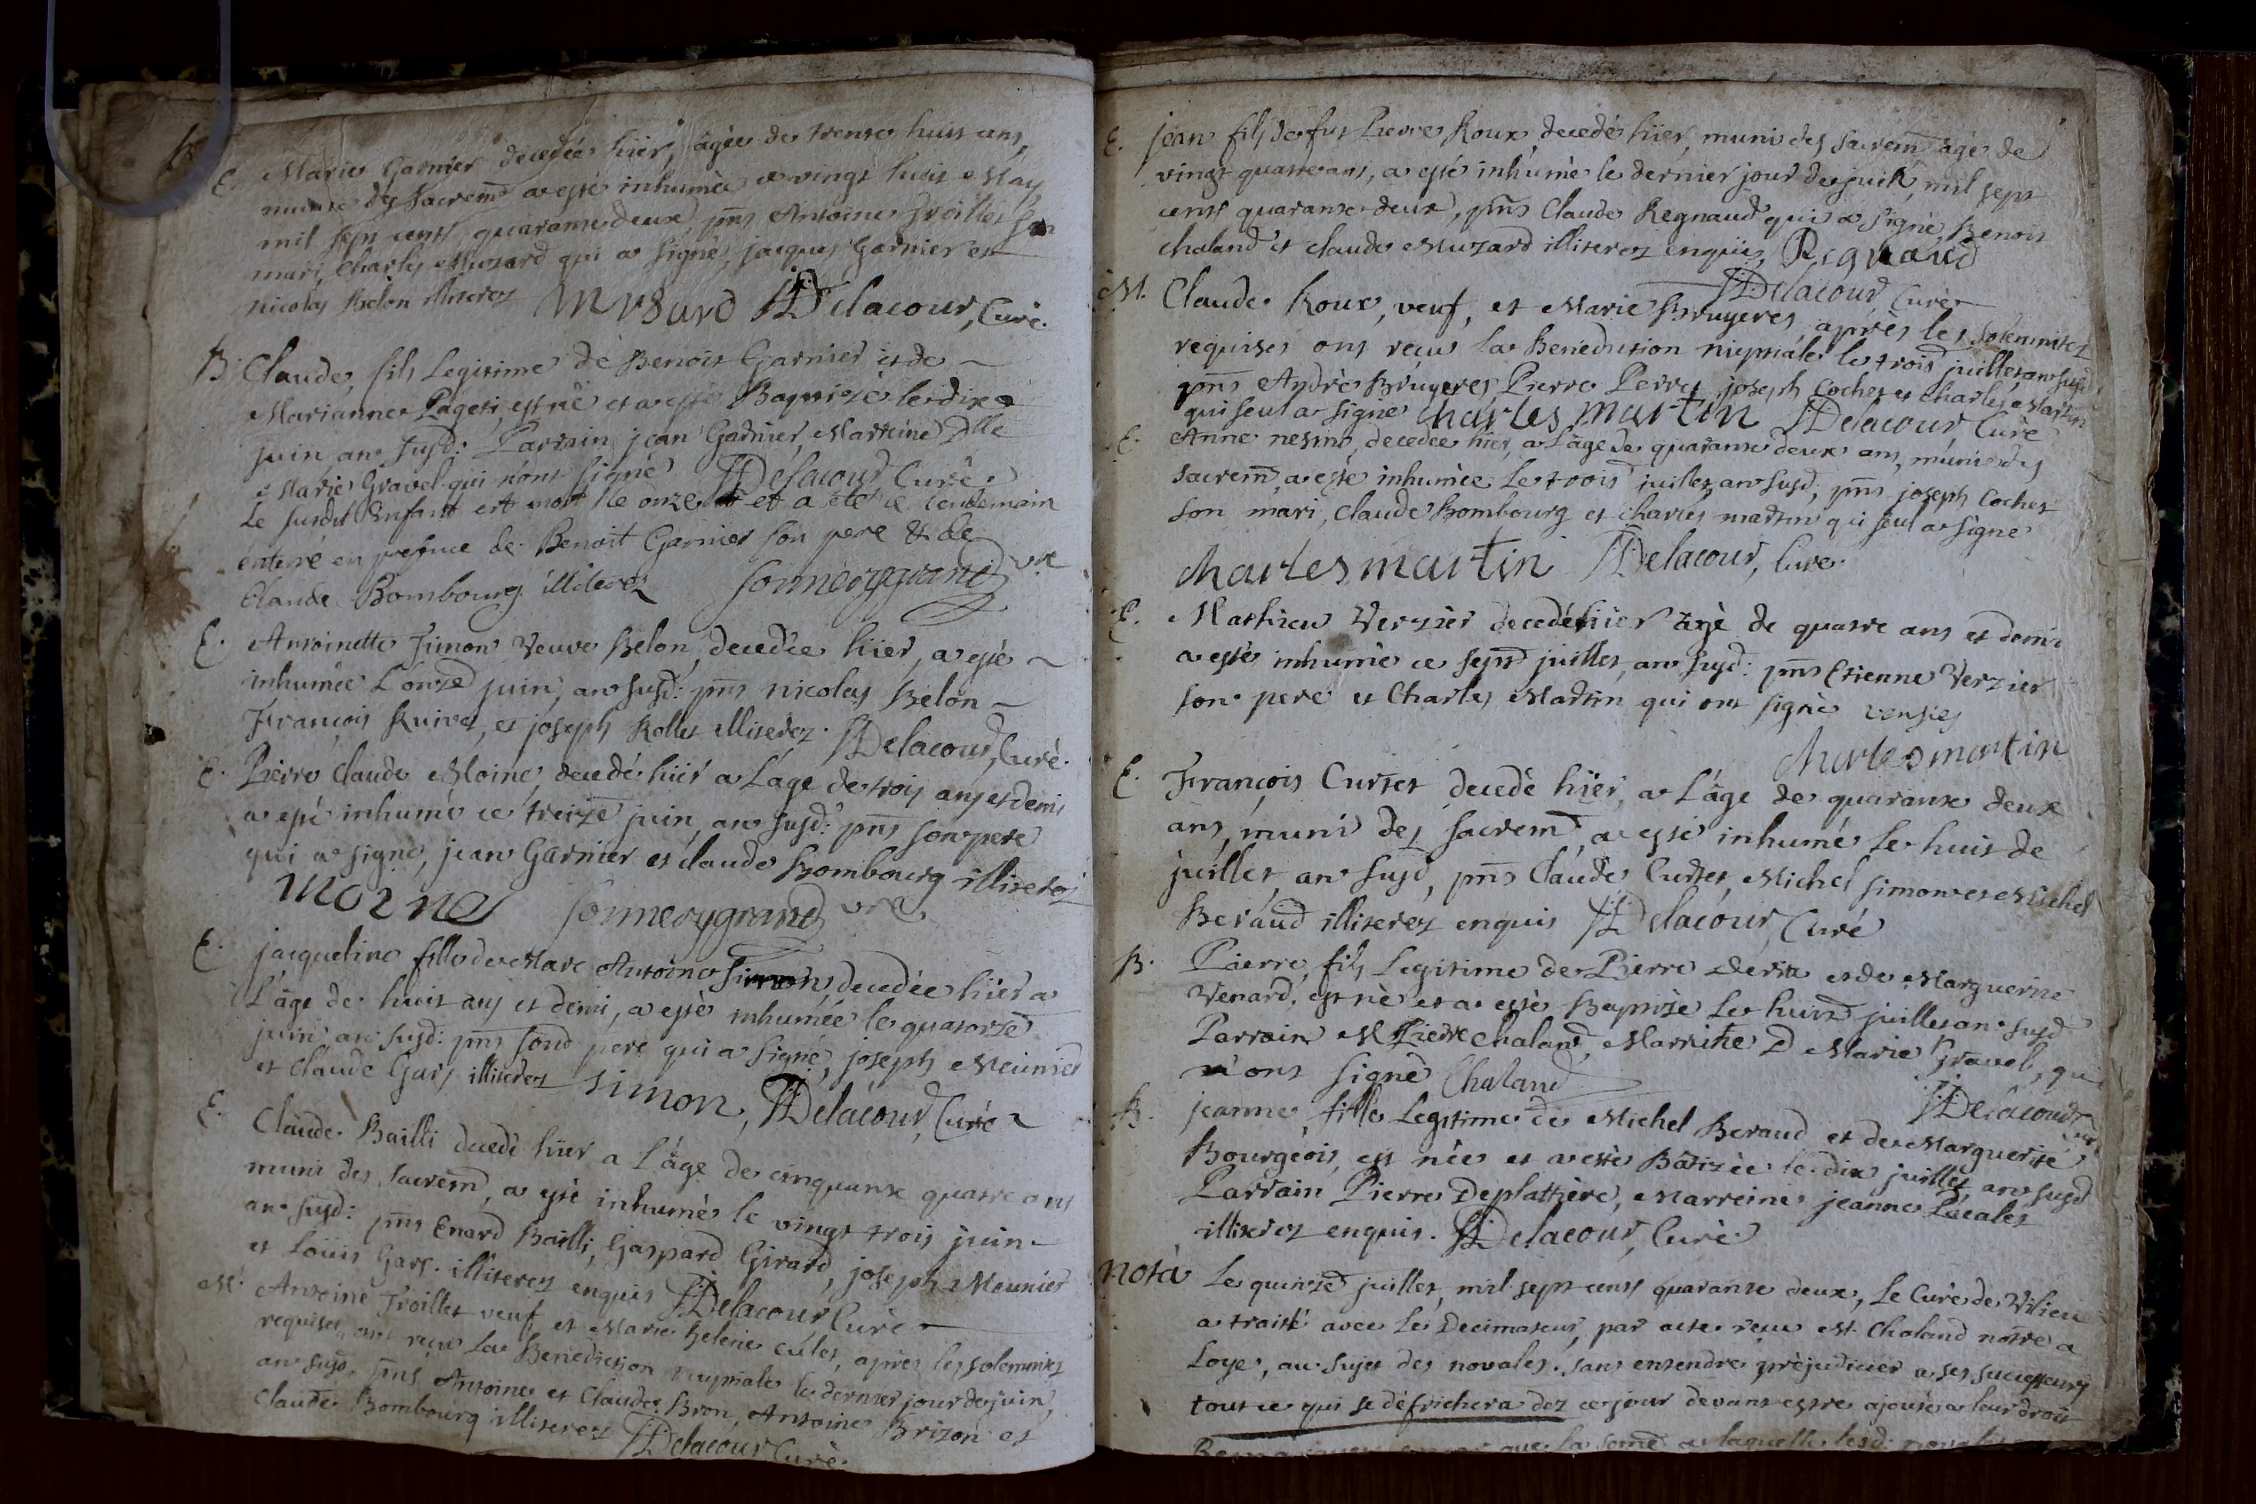 E. Marie Garnier decedée hiier, âgée de trente huit ans,
munie des Sacrem a esté inhumée ce vingt huit May
mil sept cents quarante deux, pns Antoine Froillet son
mari, Charles Musard qui a signé, jacques Garnier et
nicolas Belon illiterez Musard Delacour, Curé.
B. Claude, fils Legitime de Benoit Garnier et de
Marianne Pageti est né et a esté Baptizé le dix
juin an susd: Parrain jean Garnier Marreine Dlle
Marie Gravel qui n'ont signé Delacour Curé.
Le susdit Enfant est mort le onze et a été le lendemain
enterré en presence de Benoit Garnier son pere & de
Claude Bombourg illiterez Sonnerygrand vre
E. Antoinette Simon Veuve Belon, decedée hiier, a esté
inhumée L'onze juin, an susd: pns nicolas Belon
François Ruivet, et joseph Rollet illiterez. Delacour, Curé.
E. Pierre Claude Moine, decedé hiier a L'age de trois ans et demi
a esté inhumé ce treize juin, an susd: pns son pere
qui a signé, jean Garnier et claude Bombourg illiterez
moine Sonnerygrand vre.
E. jacqueline fille de Marc Antoine Simon decedée hiier a
L'âge de huit ans et demi, a esté inhumée le quatorze
juin an susd: pns sond pere qui a signé, joseph Meunier
et Claude Gars illiterez simon, Delacour, Curé
E. Claude Bailli decedé hiier a L'âge de cinquante quatre ans
muni des Sacrem, a esté inhumé le vingt trois juin
an susd: pns Enard Bailli, Gaspard Girard, joseph Meunier
et Loüis Gars. illiterez enquis Delacour Curé
M. Antoine Froillet veuf et Marie Helene cules, après les solemnitez
requises, ont reçu La Benediction nuptiale le dernier jour de juin,
an susd, pns Antoine et Claude Bron, Antoine Brizon et
Claude Bombourg illiterez Delacour Curé.
E. jean fils de fut Pierre Roux, decedé hiier, muni des sacrem âgé de
vingt quatre ans, a esté inhumé le dernier jour de juin, mil sept
cents quarante deux, pns Claude Regnaud qui a signé, Benoit
chaland et claude Muzard illiterez enquis, Regnaud
Delacour Curé
M. Claude Roux, veuf, et Marie Bruyeres, après les solemnitez
requises ont reçu la Benediction nuptiale le trois juillet an susd
pns André Bruyeres, Pierre Perret, joseph Cochet et charles Martin
qui seul a signé charles martin Delacour Curé
E. Anne nesme, decedée hiier, a L'âge de quarante deux ans, munie des
sacrem, a esté inhumée le trois juillet an susd, pns joseph Cochet
son mari, claude Bombourg et charles martin qui seul a signé
charles martin Delacour, Curé.
E. Mathieu Verzier decedé hiier âgé de quatre ans et demi
a esté inhumé ce sept juillet, an susd: pns Etienne Verzier
son pere et Charles Martin qui ont signé versier
charles martin
E. François Curtet decedé hiier, a L'âge de quarante deux
ans, muni des sacrem, a esté inhumé le huit de
juillet, an susd, pns Claude Curtet, Michel simon et Michel
Beraud illiterez enquis Delacour, Curé
B. Pierre, fils Legitime de Pierre et de Marguerite
Venard, est né et a esté Baptize le huit juillet an susd
Parrain M Pierre Chaland, Marreine D Marie Gravel, qui
n'ont signé Chaland
Delacour Curé
B. jeanne, fille Legitime de Michel Beraud et de Marguerite
Bourgeois, est née et a esté Batizée le dix juillet an susd
Parrain Pierre Deplattière, Marreine jeanne Lacales
illiterez enquis. Delacour, Curé.
Nota Le quinze juillet, mil sept cents quarante deux, Le Curé de Vilieu
a traité avec Le Decimateur, par acte reçu Mt Chaland notre a
Loye, au sujet des novales. sans entendre prejudicier a ses successeurs
tout ce qui se défrichera dez ce jour devant estre ajouté a leur droit
que la some a laquelle lesd.